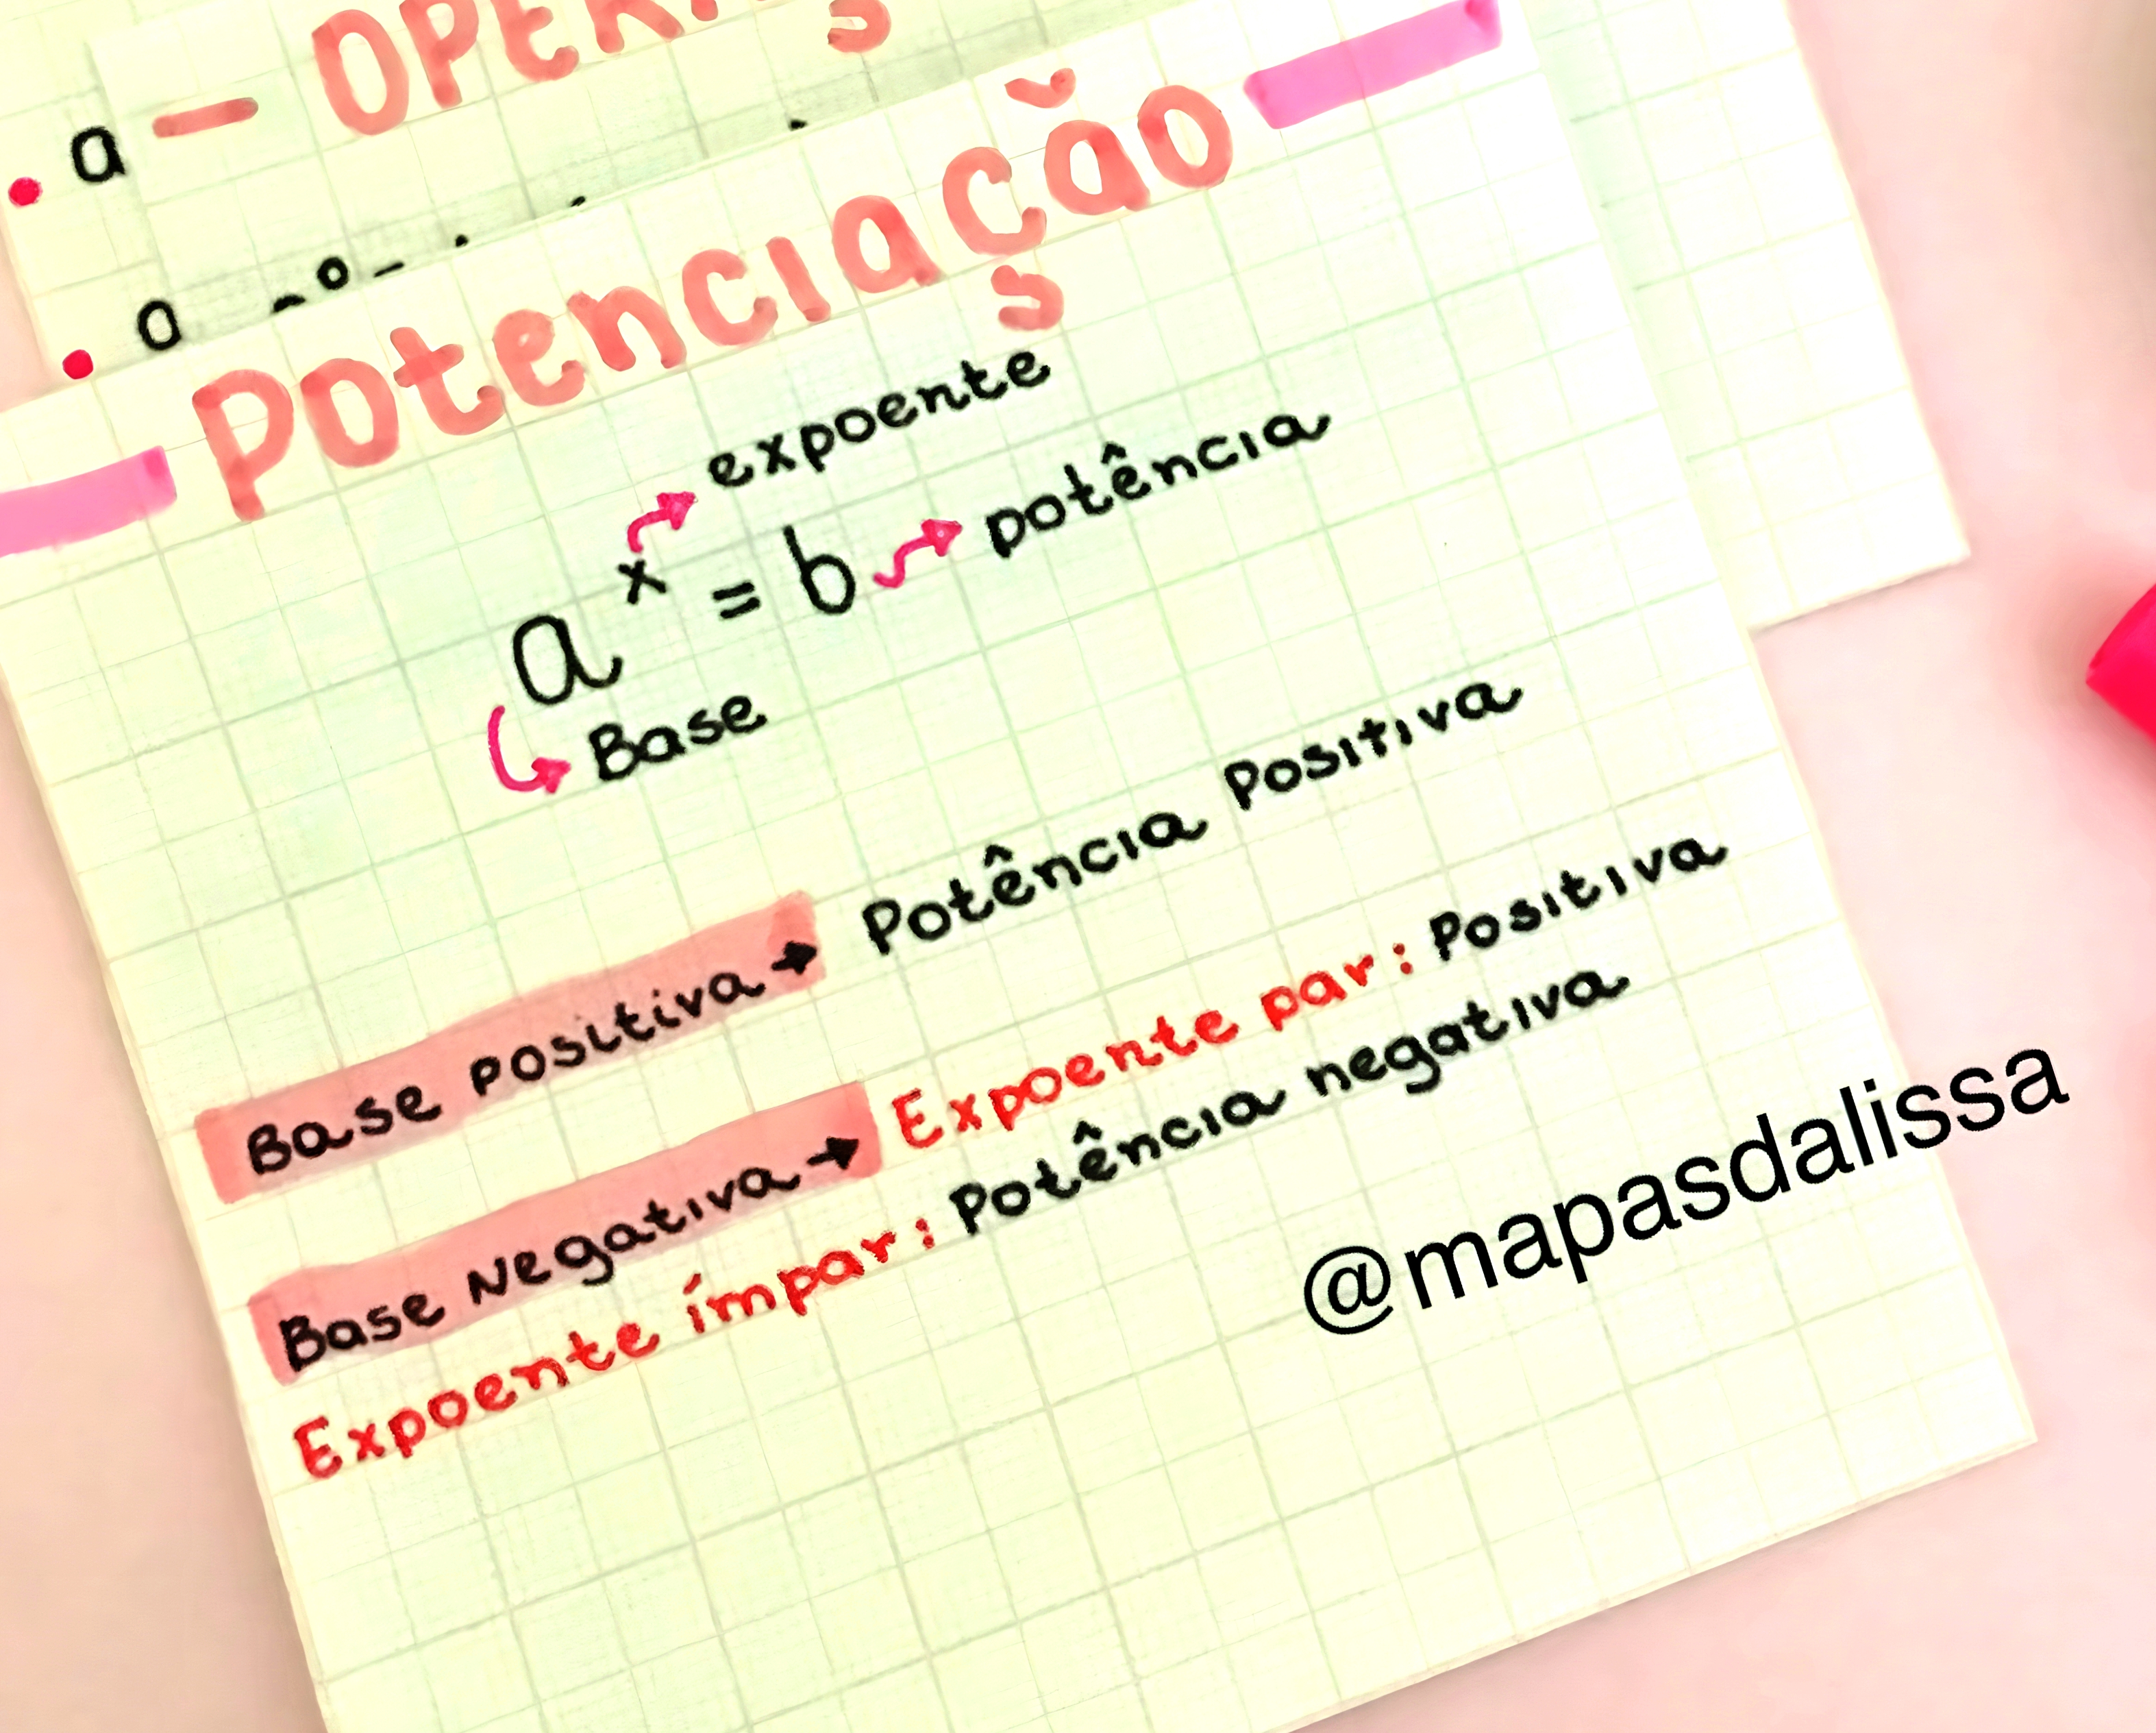 a
Potenciação
expoente
a^x = b potência
Base
Base positiva → Potência Positiva
Base Negativa → Expoente par: Positiva
Expoente ímpar: Potência negativa
@mapasdalissa